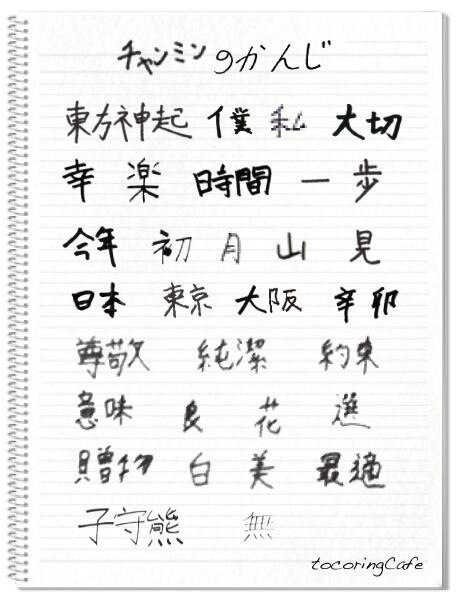 チャンミンのかんじ
東方神起 僕 私 大切
幸 楽 時間 一歩
今年 初 月 山 見
日本 東京 大阪 辛卯
尊敬 純潔 約束
意味 良 花 選
贈物 白 美 最適
子守熊 無
tocoringCafe